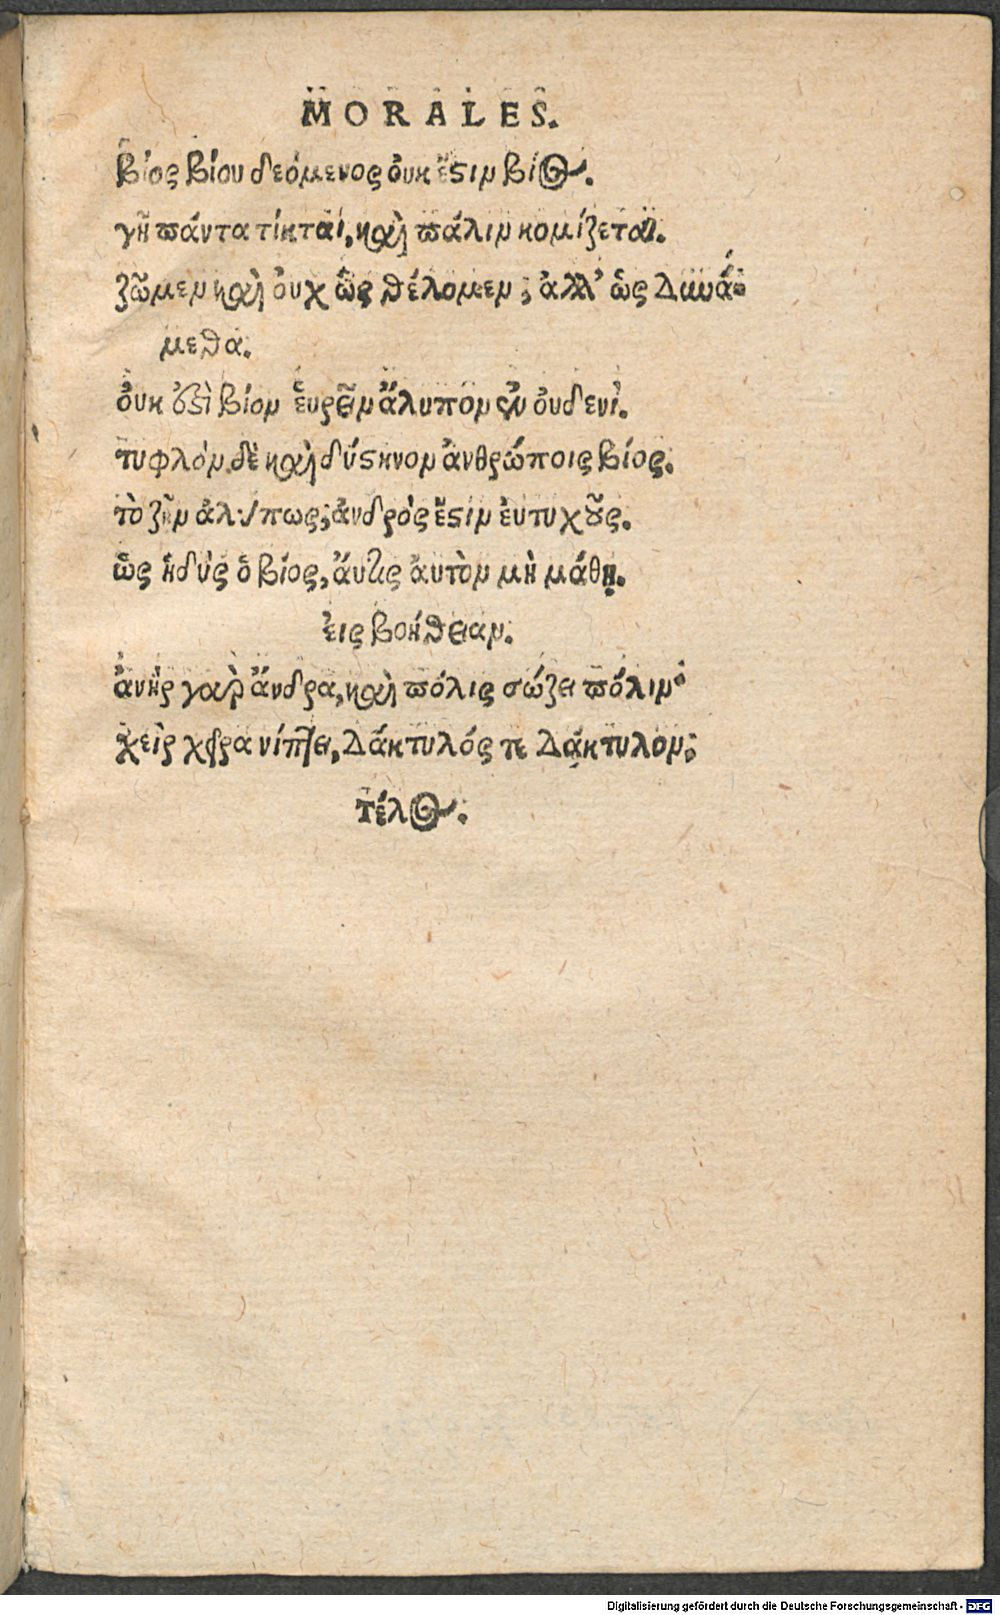 MORALES.
βίος βίου δεόμενος ὀυκ ἔστιν βίος.
γῆ πάντα τίκται, καὶ πάλιν κομίζεται.
ζῶμεν καὶ ὀυχ ὡς θέλομεν, ἀλλ' ὡς δυνά-
μεθα.
ὀυκ ἐστὶ βίον ἑυρεῖν ἄλυπον ὀυδενί.
τυφλὸν δὲ καὶ δύστηνον ἀνθρώποις βίος.
τὸ ζῆν ἀλύπως, ἀνδρός ἔστιν ἐυτυχοῦς.
ὡς ἡδὺς ὁ βίος, ἄυτις ἀυτὸν μὴ μάθῃ.
ἐις βοήθειαν.
ἀνὴρ γαρ ἄνδρα, καὶ πόλις σώζει πόλιν·
χεὶρ χεῖρα νίπτει, δάκτυλός τε δάκτυλον.
Τέλος.
Digitalisierung gefördert durch die Deutsche Forschungsgemeinschaft - DFG